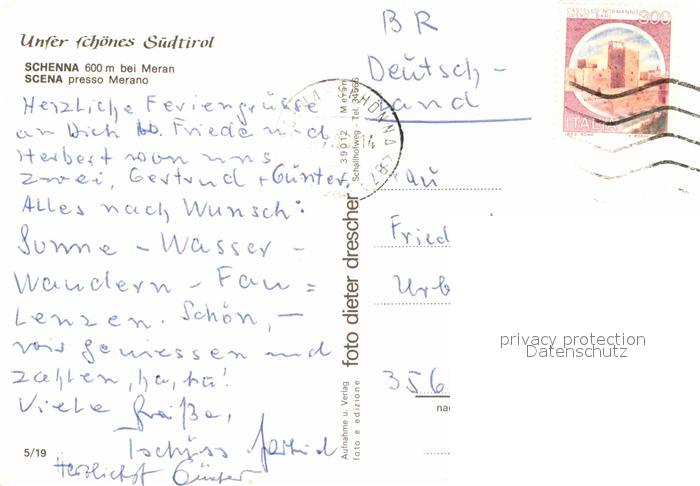 Unser schönes Südtirol
SCHENNA 600 m bei Meran
SCENA presso Merano
Herzliche Feriengrüsse
an Dich lb. Friede und
Herbert von uns
zwei, Gertrud + Günter.
Alles nach Wunsch:
Sonne - Wasser -
Wandern - Fau =
Lenzen. Schön, -
wir geniessen und
zahlen, ha, ha!
Viele Grüße,
Tschüss Gertrud
Herzlichst Günter
5/19
Aufnahme u. Verlag
foto e edizione
foto dieter drescher
39012 Meran
Schallhofweg - Tel. 34966
BR
Deutsch -
land
Fried
Urb
356
CASTELLO NORMANNO
SVEVO BARI
900
ITALIA
privacy protection
Datenschutz